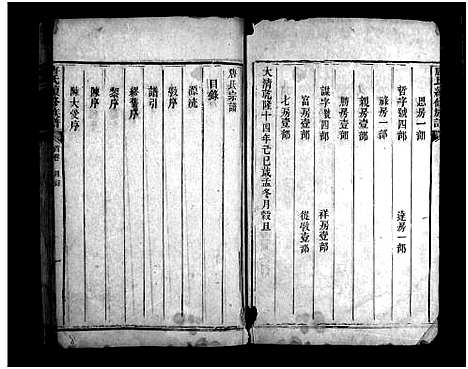 思房一部 達房一部
哲字號四部
祿房一部
親房壹部
勝房壹部
謀字號四部 祥房壹部
富房壹部 從敬壹部
七房壹部
大清乾隆十四年己巳歲孟冬月穀旦
唐氏宗譜
目錄
源流
譜引
敦序
繆舊序
黎序
陳序
陳大受序